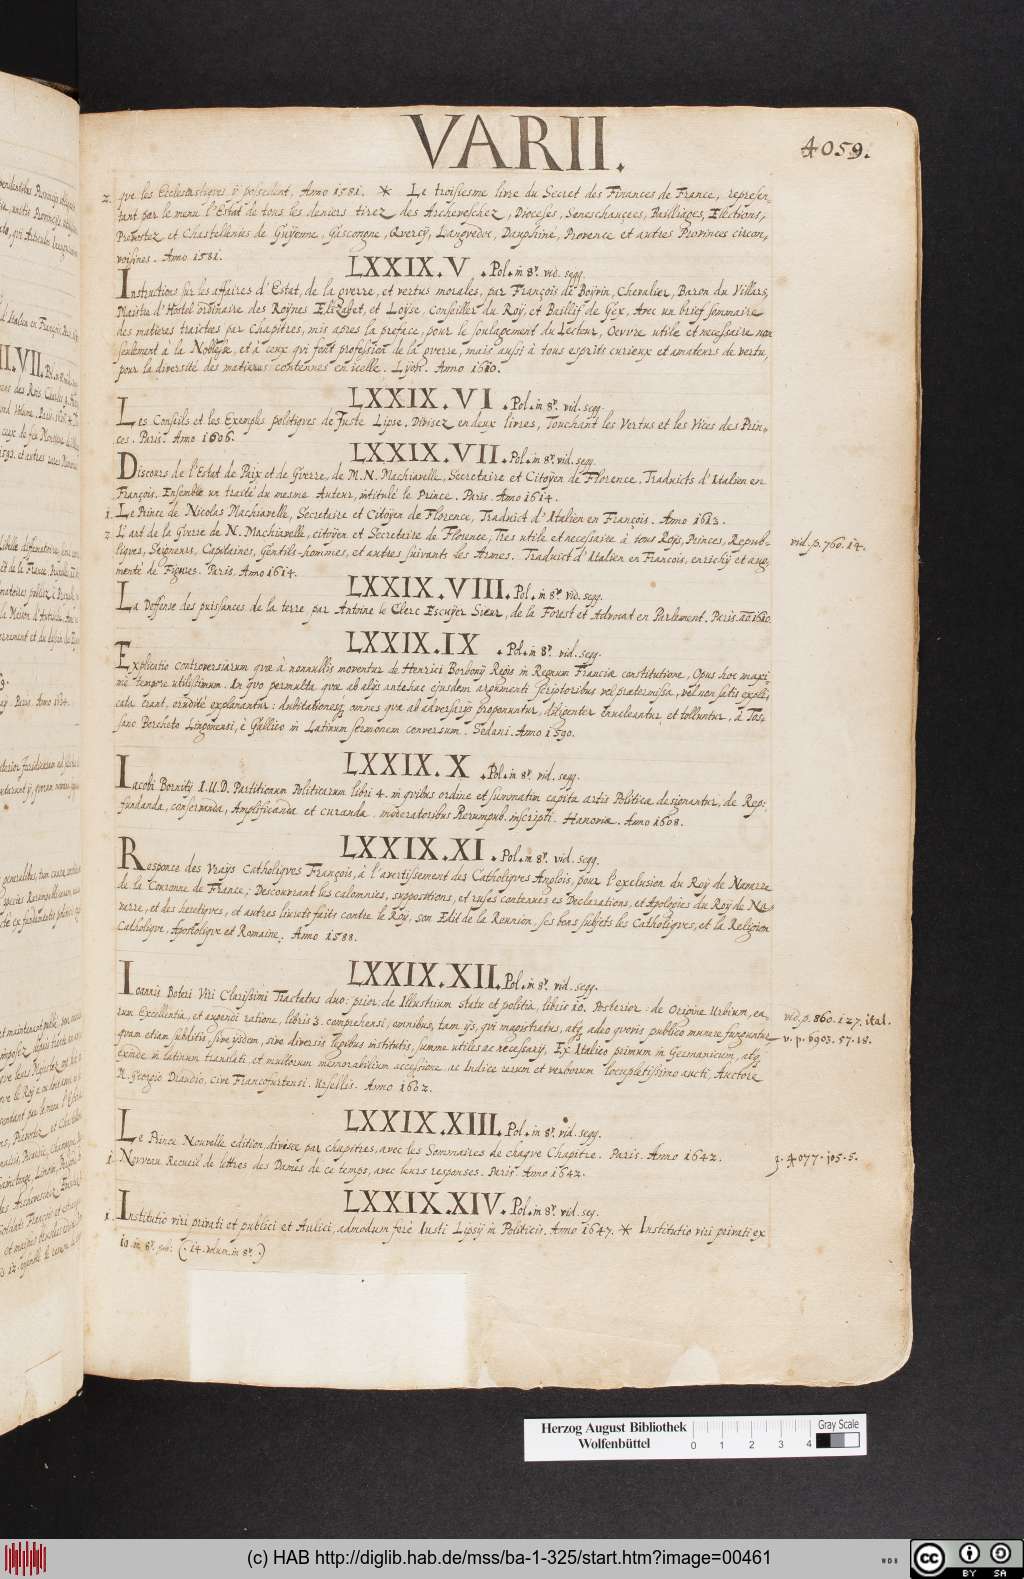 VARII.
4059.
2. que les Ecclesiastiques ÿ possedent, Anno 1581. * Le troisiesme livre du Secret des Finances de France, represen-
tant par le menu l'Estat de tous les deniers tirez des Archeveschez, Dioceses, Seneschaucees, Bailliages, Elections,
Prevostez et Chastellenies de Guÿenne, Gascongne, Quercÿ, Languedoc, Dauphiné, Provence et autres Provinces circon-
voisines. Anno 1581.
LXXIX.V. Pol. in 8º. vid. seqq.
Instructions sur les affaires d'Estat, de la guerre, et vertus morales, par François de Boÿvin, Chevalier, Baron du Villars,
Maistre d'Hostel ordinaire des Roÿnes Elizabet, et Loÿse, Conseiller du Roÿ, et Baillif de Gex, Avec un brief sommaire
des matieres traictees par Chapitres, mis apres la preface, pour le soulagement du Lecteur, Oeuvre utile et necessaire non
seulement à la Noblesse, et à ceux qui font profession de la guerre, mais aussi à tous esprits curieux et amateurs de vertu,
pour la diversité des matieres contenues en icelle. Lyon. Anno 1610.
LXXIX.VI. Pol. in 8º. vid. seqq.
Les Conseils et les Exemples politiques de Juste Lipse, Divisez en deux livres, Touchant les Vertus et les Vices des Prin-
ces. Paris. Anno 1606.
LXXIX.VII. Pol. in 8º. vid. seqq.
Discours de l'Estat de Paix et de Guerre, de M. N. Machiavelle, Secretaire et Citoÿen de Florence, Traduicts d'Italien en
François, Ensemble un traicté du mesme Auteur, intitulé le Prince. Paris. Anno 1614.
1. Le Prince de Nicolas Machiavelle, Secretaire et Citoÿen de Florence, Traduict d'Italien en François. Anno 1613.
2. L'art de la Guerre de N. Machiavelle, citoÿen et Secretaire de Florence, Tres utile et necessaire à tous Roÿs, Princes, Repub-
liques, Seigneurs, Capitaines, Gentils-hommes, et autres suivants les Armes. Traduict d'Italien en François, enrichÿ et aug-
menté de Figures. Paris. Anno 1614.
vid. p. 760. 14.
LXXIX.VIII. Pol. in 8º. vid. seqq.
La Deffense des puissances de la terre par Antoine le Clerc Escuÿer Sieur, de la Forest et Advocat en Parlement. Paris. aõ 1610.
LXXIX.IX. Pol. in 8º. vid. seqq.
Explicatio controversiarum quæ à nonnullis moventur de Henrici Borbonÿ Regis in Regnum Franciæ constitutione, Opus hoc maxi-
me tempore utilissimum. In quo permulta quæ ab alÿs antehac ejusdem argumenti scriptoribus vel prætermissa, vel non satis expli-
cata erant, eruditè explanantur: dubitationesq; omnes quæ ab adversarÿs proponuntur, diligenter enucleantur et tolluntur, à Tos-
sano Bercheto Lingonensi, è Gallico in Latinum sermonem conversum. Sedani. Anno 1590.
LXXIX.X. Pol. in 8º. vid. seqq.
Iacobi Bornitÿ I.U.D. Partitionum Politicarum libri 4. in quibus ordine et summatim capita artis Politicæ designantur, de Rep:
fundanda, conservanda, Amplificanda et curanda. moderatoribus Rerumpub. inscripti. Hanoviæ. Anno 1608.
LXXIX.XI. Pol. in 8º. vid. seqq.
Responce des Vraÿs Catholiques François, à l'avertissement des Catholiques Anglois, pour l'exclusion du Roÿ de Navarre
de la Couronne de France; Descouvrant les calomnies, suppositions, et ruses contenues es Declarations, et Apologies du Roÿ de Na-
varre, et des heretiques, et autres livrets faits contre le Roy, son Edit de la Reunion, ses bons subjets les Catholiques, et la Religion
Catholique, Apostolique et Romaine. Anno 1588.
LXXIX.XII. Pol. in 8º. vid. seqq.
Ioannis Boteri Viri Clarissimi Tractatus duo: prior: de Illustrium statu et politia, libris 10. Posterior: de Origine Urbium, ea-
rum Excellentia, et augendi ratione, libris 3. comprehensi, omnibus, tam ÿs, qui magistratus, atq; adeo quovis publico munere funguntur,
quam etiam subditis, sive ÿsdem, sive diversis legibus institutis, summe utiles ac necessarÿ, Ex Italico primum in Germanicum, atq;
exinde in latinum translati et multorum memorabilium accessione, ac Indice rerum et verborum locupletissimo aucti, Auctore
M. Georgio Draudio, Cive Francofurtensi. Ursellis. Anno 1602.
vid. p. 860. 127. ital.
v. p. 8903. 57. 18.
LXXIX.XIII. Pol. in 8º. vid. seqq.
Le Prince Nouvelle edition divisee par chapitres, avec les Sommaires de chaque Chapitre. Paris. Anno 1642.
1. Nouveau Recueil de lettres des Dames de ce temps, avec leurs responses. Paris. Anno 1642.
3. 4077. 105. 5.
LXXIX.XIV. Pol. in 8º. vid. seq.
1. Institutio viri privati et publici et Aulici, admodum ferè Iusti Lipsÿ in Politicis. Anno 1647. * Institutio viri privati ex
(. 14. volum. in 8º. .)
Herzog August Bibliothek
Wolfenbüttel
0 1 2 3 4
Gray Scale
(c) HAB http://diglib.hab.de/mss/ba-1-325/start.htm?image=00461
WDB
cc BY SA